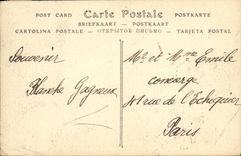 POST CARD Carte Postale POSTKARTE
BRIEFKAART — POSTKAART
CARTOLINA POSTALE — ОТКРЫТОЕ ПИСЬМО — TARJETA POSTAL
Souvenir
Blanche Gagneux
Mr et Mme Emile
concierge
41 rue de l'Echiquier
Paris